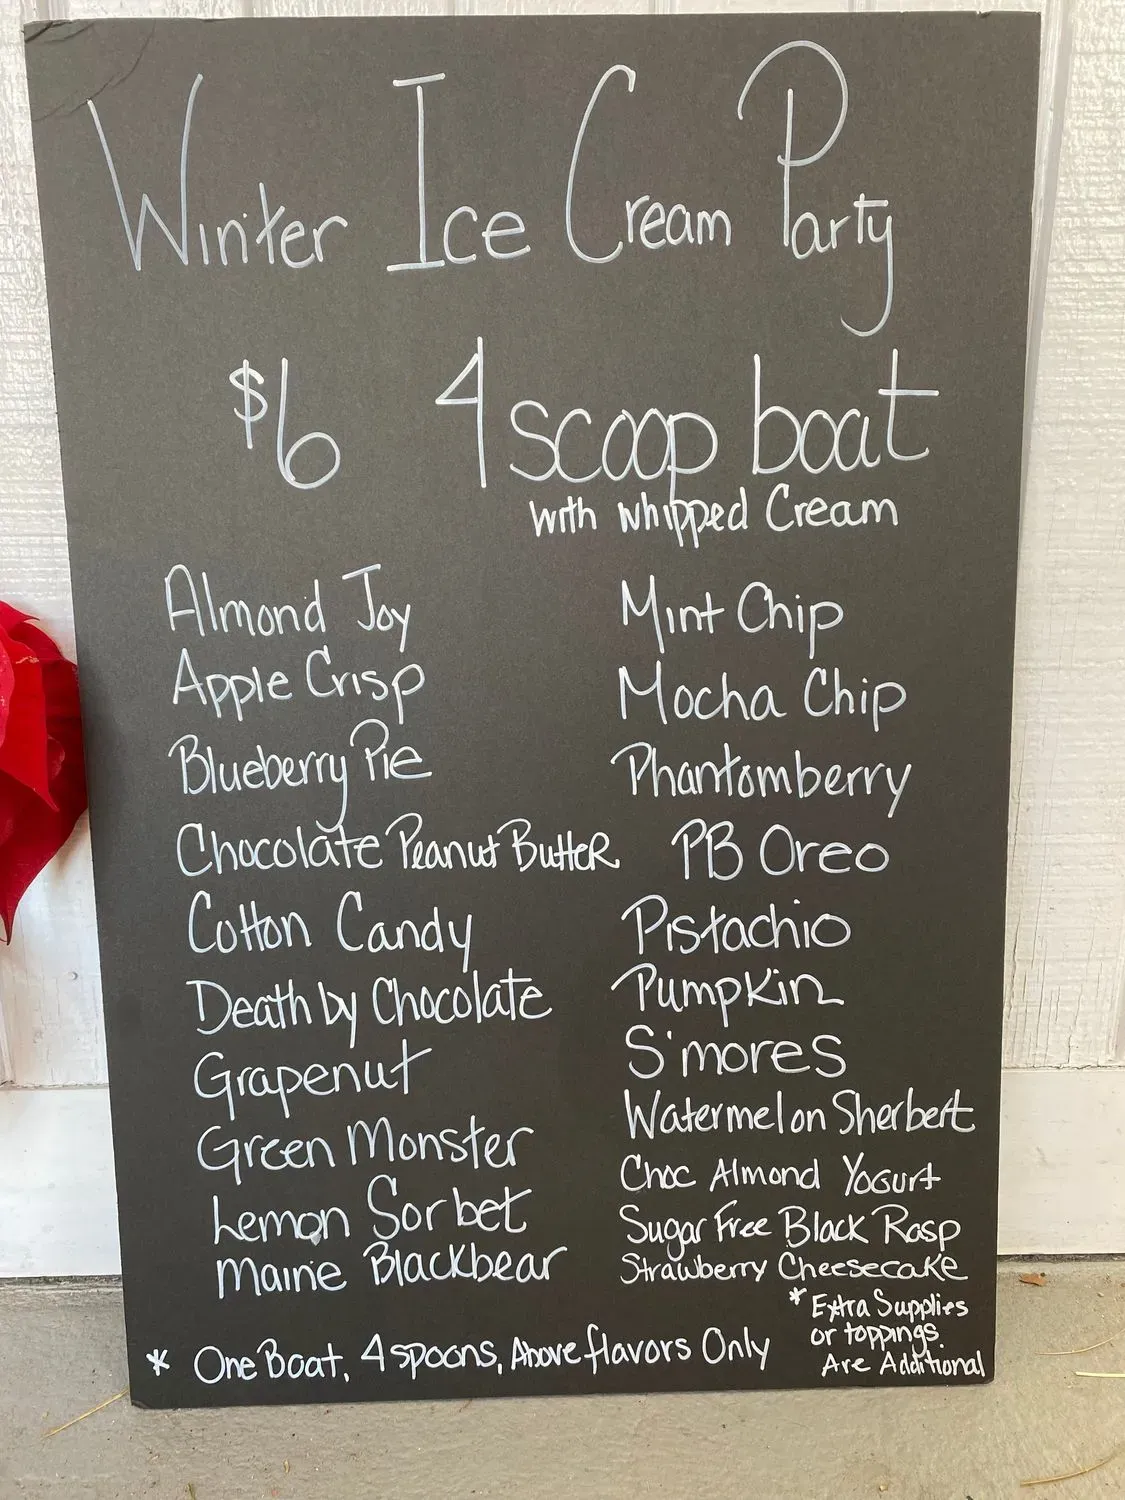 Winter Ice Cream Party
$6 4 scoop boat
with whipped Cream
Almond Joy
Apple Crisp
Blueberry Pie
Chocolate Peanut Butter
Cotton Candy
Death by Chocolate
Grapenut
Green Monster
Lemon Sorbet
Maine Blackbear
Mint Chip
Mocha Chip
Phantomberry
PB Oreo
Pistachio
Pumpkin
S'mores
Watermelon Sherbert
Choc Almond Yogurt
Sugar Free Black Rasp
Strawberry Cheesecake
* Extra Supplies
or toppings
Are Additional
* One Boat, 4 spoons, Above flavors Only